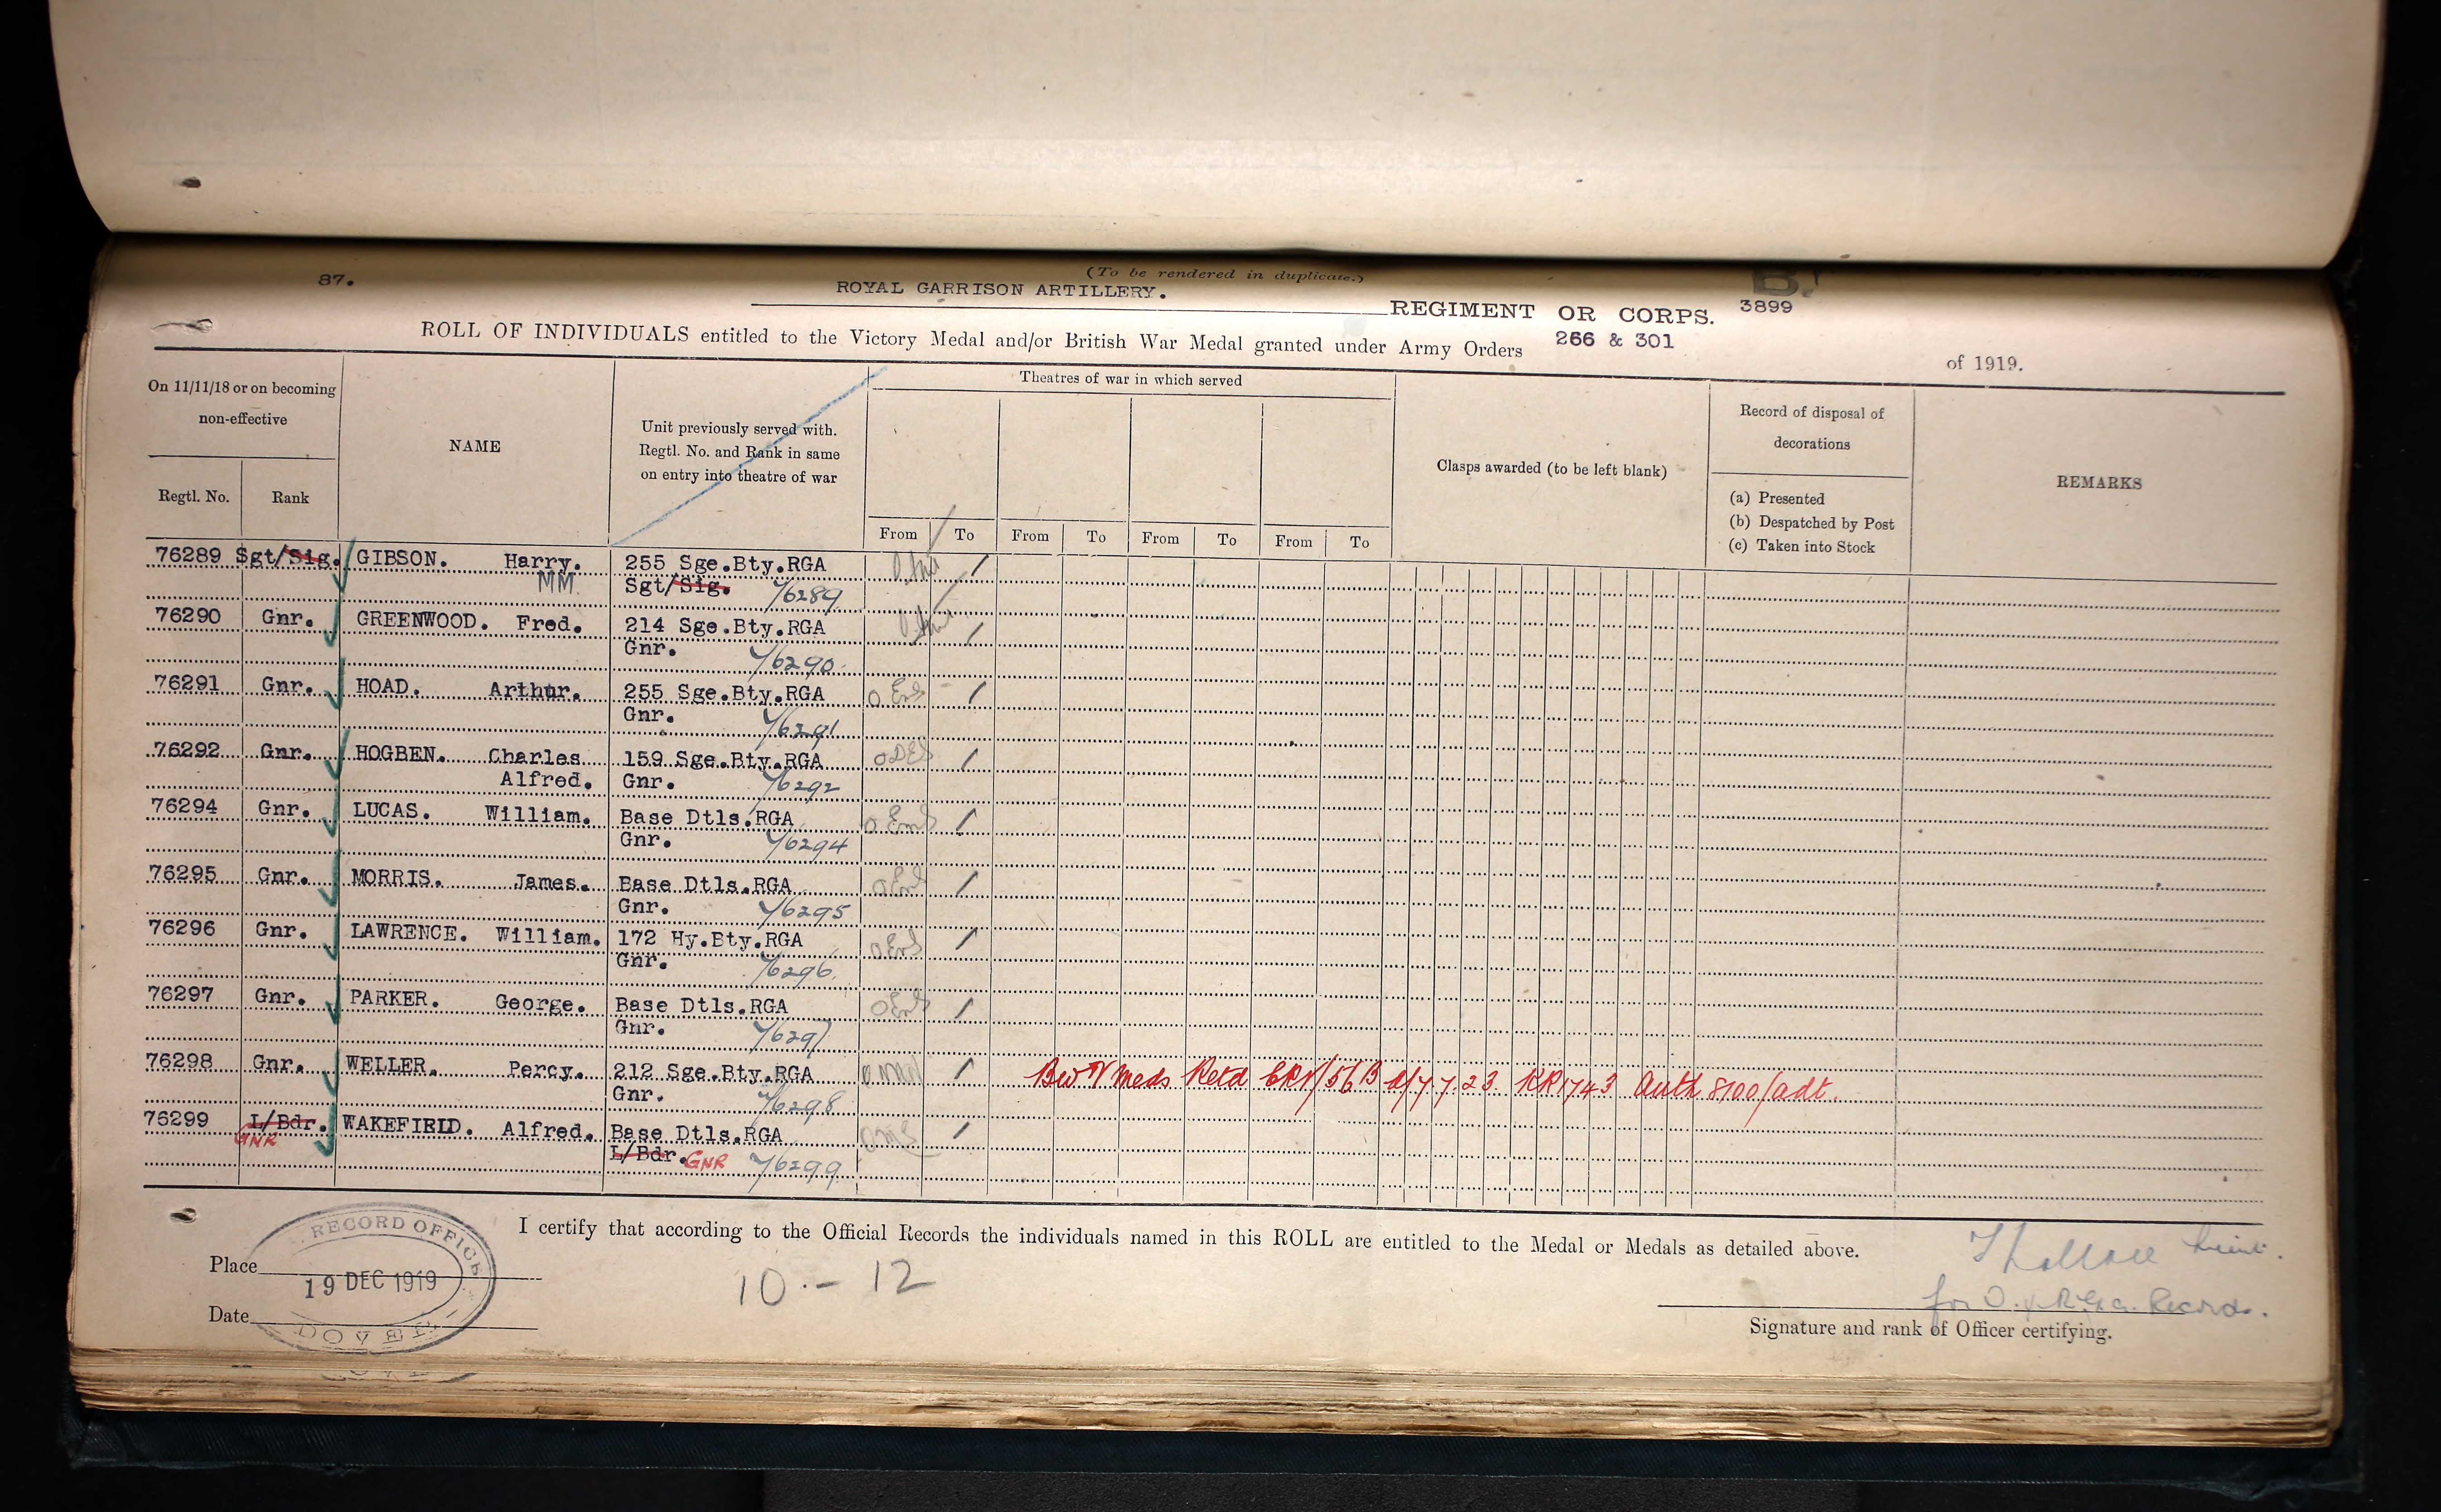 87.
(To be rendered in duplicate.)
ROYAL GARRISON ARTILLERY. REGIMENT OR CORPS.
B.
3899
ROLL OF INDIVIDUALS entitled to the Victory Medal and/or British War Medal granted under Army Orders 266 & 301 of 1919.
On 11/11/18 or on becoming
non-effective
Regtl. No.
Rank
NAME
Unit previously served with.
Regtl. No. and Rank in same
on entry into theatre of war
Theatres of war in which served
From To From To From To From To
Clasps awarded (to be left blank)
Record of disposal of
decorations
(a) Presented
(b) Despatched by Post
(c) Taken into Stock
REMARKS
76289 Sgt/Sig. GIBSON. Harry. 255 Sge.Bty.RGA
MM Sgt/Sig. 76289
76290 Gnr. GREENWOOD. Fred. 214 Sge.Bty.RGA
Gnr. 76290
76291 Gnr. HOAD. Arthur. 255 Sge.Bty.RGA
Gnr. 76291
76292 Gnr. HOGBEN. Charles 159 Sge.Bty.RGA
Alfred. Gnr. 76292
76294 Gnr. LUCAS. William. Base Dtls.RGA
Gnr. 76294
76295 Gnr. MORRIS. James. Base Dtls.RGA
Gnr. 76295
76296 Gnr. LAWRENCE. William. 172 Hy.Bty.RGA
Gnr. 76296
76297 Gnr. PARKER. George. Base Dtls.RGA
Gnr. 76297
76298 Gnr. WELLER. Percy. 212 Sge.Bty.RGA BW V Meds Retd 7.7.23 KR1743 Auth 8100/adt.
Gnr. 76298
76299 L/Bdr. WAKEFIELD. Alfred. Base Dtls.RGA
GNR L/Bdr. GNR 76299
I certify that according to the Official Records the individuals named in this ROLL are entitled to the Medal or Medals as detailed above.
Place
Date
RECORD OFFICE
19 DEC 1919
DOVER
10 - 12
Lieut.
for O. i/c R.G.A. Records.
Signature and rank of Officer certifying.